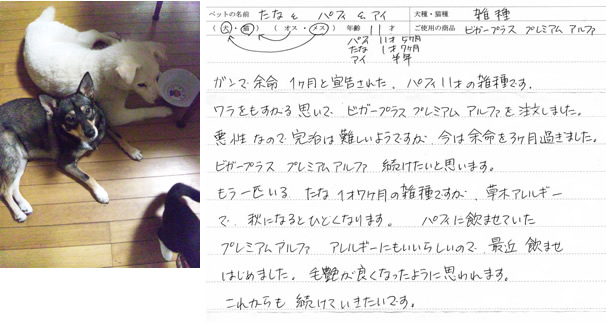 ペットの名前 たなと パフィ & アイ 犬種・猫種 雑種
(犬・猫) (オス・メス) 年齢 11才 ご使用の商品 ビガープラス プレミアム アルファ
パフィ 11才5ヶ月
たな 1才7ヶ月
アイ 半年
ガンで余命 1ヶ月と宣告された、パフィ11才の雑種です。
ワラをもすがる思いで、ビガープラス プレミアム アルファを注文しました。
悪性なので完治は難しいようですが、今は余命を3ヶ月過ぎました。
ビガープラス プレミアムアルファ 続けたいと思います。
もう一匹いる たな1才7ヶ月の雑種ですが、草木アレルギー
で、秋になるとひどくなります。 パフィに飲ませていた
プレミアムアルファ アレルギーにもいいらしいので、最近 飲ませ
はじめました。毛艶が良くなったように思われます。
これからも 続けていきたいです。